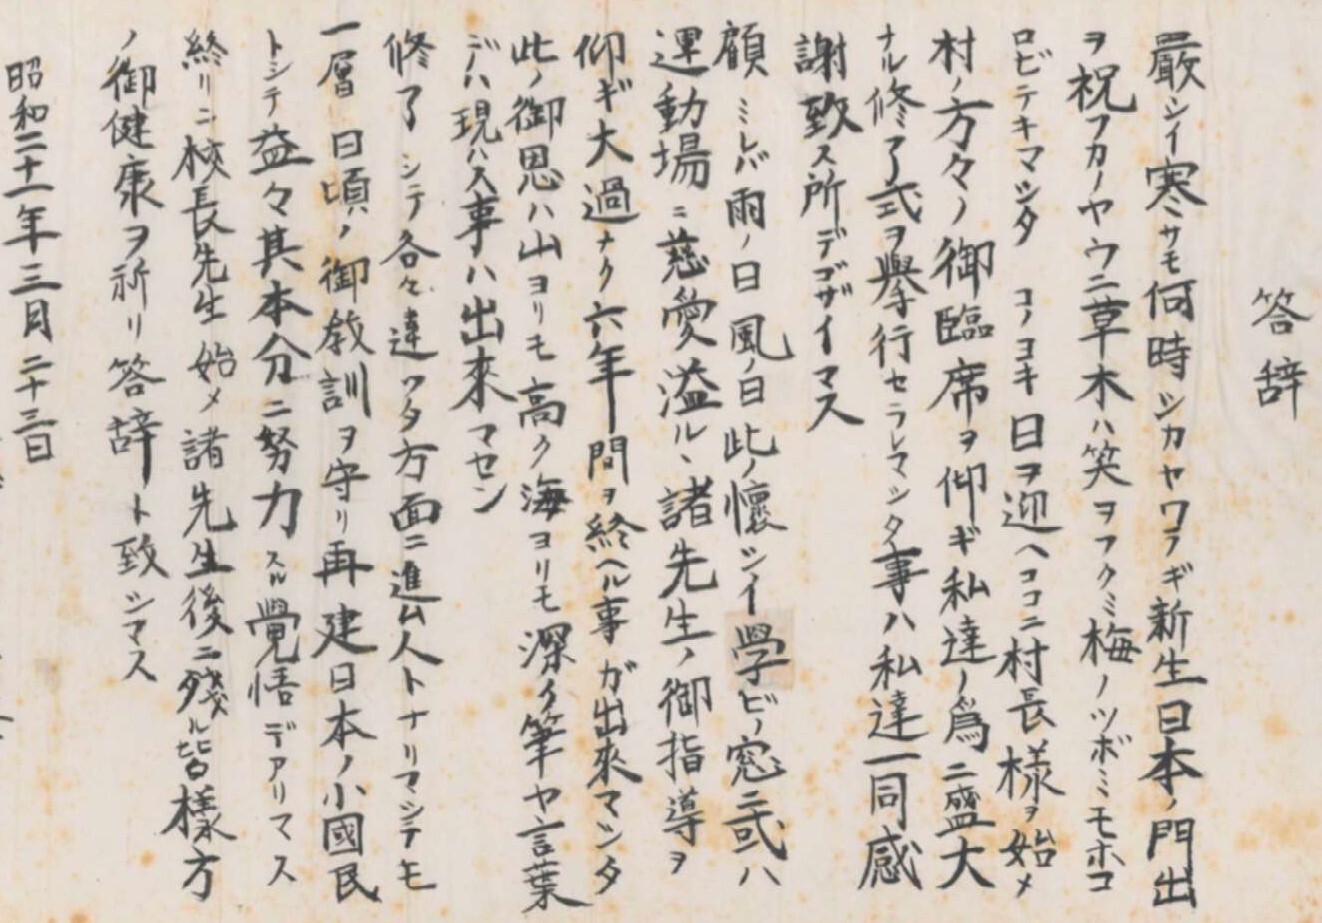 答辞
厳シイ寒サモ何時シカヤワラギ新生日本ノ門出
ヲ祝フカノヤウニ草木ハ笑ヲフクミ梅ノツボミモホコ
ロビテキマシタ コノヨキ日ヲ迎ヘココニ村長様ヲ始メ
村ノ方々ノ御臨席ヲ仰ギ私達ノ為ニ盛大
ナル修了式ヲ挙行セラレマシタ事ハ私達一同感
謝致ス所デゴザイマス
顧ミレバ雨ノ日風ノ日此ノ懐シイ學ビノ窓ニ或ハ
運動場ニ慈愛溢ルヽ諸先生ノ御指導ヲ
仰ギ大過ナク六年間ヲ終ヘル事ガ出來マシタ
此ノ御恩ハ山ヨリモ高ク海ヨリモ深ク筆ヤ言葉
デハ現ハス事ハ出來マセン
修了シテ各々違ッタ方面ニ進ム人トナリマシテモ
一層日頃ノ御教訓ヲ守リ再建日本ノ小國民
トシテ益々其本分ニ努力スル覺悟デアリマス
終リニ校長先生始メ諸先生後ニ残ル皆様方
ノ御健康ヲ祈リ答辞ト致シマス
昭和二十一年三月二十三日